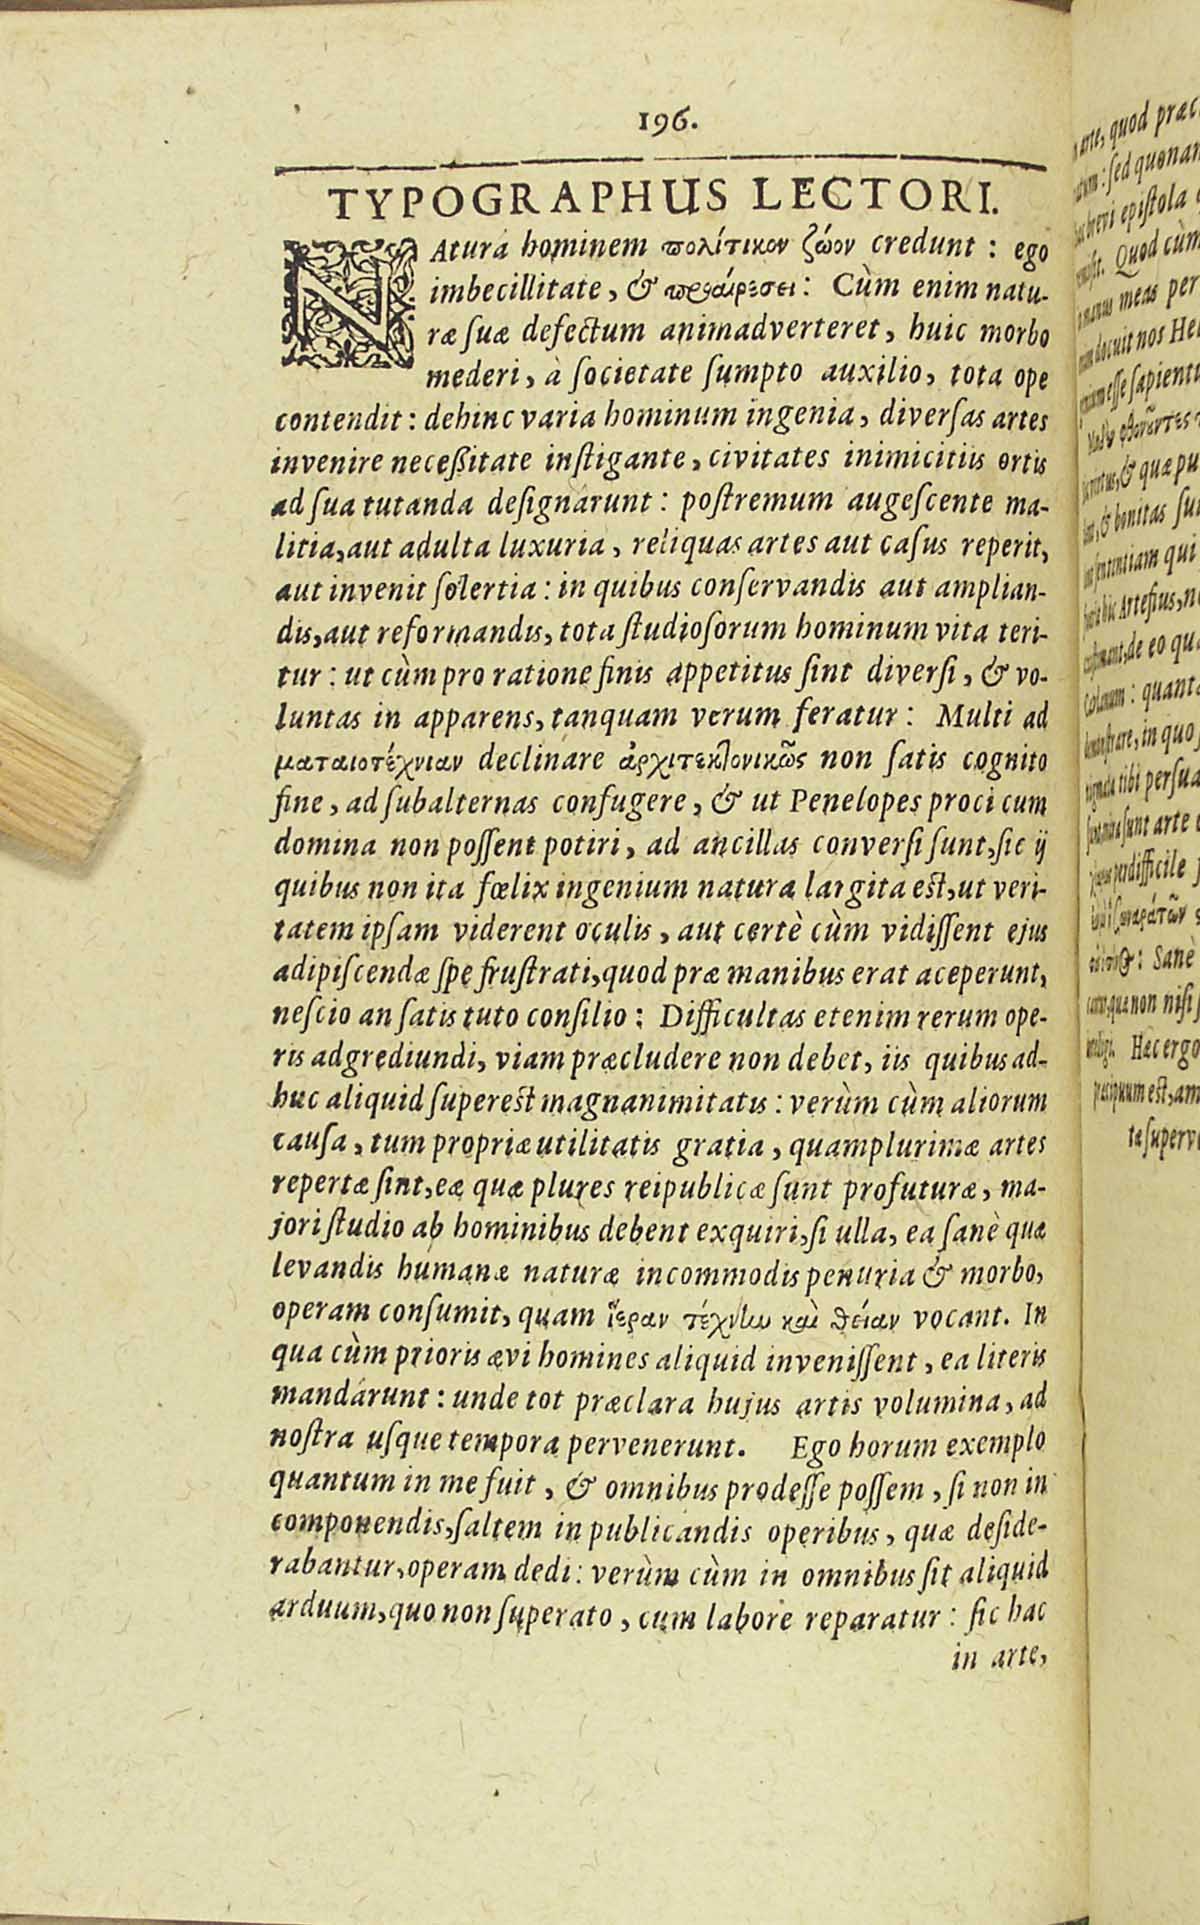 196.
TYPOGRAPHUS LECTORI.
NAturá hominem πολίτικον ζώον credunt : ego
imbecillitate, & προαίρεσει: Cùm enim natu-
ræ ſuæ defectum animadverteret, huic morbo
mederi, à ſocietate ſumpto auxilio, tota ope
contendit: dehinc varia hominum ingenia, diverſas artes
invenire neceßitate inſtigante, civitates inimicitiis ortis
ad ſua tutanda deſignárunt: poſtremum augeſcente ma-
litia, aut adulta luxuria, reliquas artes aut caſus reperit,
aut invenit ſolertia: in quibus conſervandis aut amplian-
dis, aut reformandis, tota ſtudioſorum hominum vita teri-
tur: ut cùm pro ratione finis appetitus ſint diverſi, & vo-
luntas in apparens, tanquam verum feratur: Multi ad
ματαιοτέχνιαν declinare ἀρχιτεκτονικῶς non ſatis cognito
fine, ad ſubalternas confugere, & ut Penelopes proci cum
domina non poſſent potiri, ad ancillas converſi ſunt, ſic ij
quibus non ita fœlix ingenium natura largita eſt, ut veri-
tatem ipſam viderent oculis, aut certè cùm vidiſſent ejus
adipiſcendæ ſpe fruſtrati, quod præ manibus erat aceperunt,
neſcio an ſatis tuto conſilio: Difficultas etenim rerum ope-
ris adgrediundi, viam præcludere non debet, iis quibus ad-
huc aliquid ſupereſt magnanimitatis: verùm cùm aliorum
cauſa, tum propriæ utilitatis gratia, quamplurimæ artes
repertæ ſint, eæ quæ plures reipublicæ ſunt profuturæ, ma-
jori ſtudio ab hominibus debent exquiri, ſi ulla, ea ſanè quæ
levandis humanæ naturæ incommodis penuria & morbo,
operam conſumit, quam ἵεραν τέχνην καὶ θείαν vocant. In
qua cùm prioris ævi homines aliquid inveniſſent, ea literis
mandárunt: unde tot præclara hujus artis volumina, ad
noſtra uſque tempora pervenerunt. Ego horum exemplo
quantum in me fuit, & omnibus prodeſſe poſſem, ſi non in
componendis, ſaltem in publicandis operibus, quæ deſide-
rabantur, operam dedi: verùm cùm in omnibus ſit aliquid
arduum, quo non ſuperato, cum labore reparatur: ſic hac
in arte,
arte, quod
ſed quonam
brevi epiſtola
Quod cùm
manus meas per
docuit nos
eſſe ſapientu
& quæ pu
& bonitas
ſententiam qui
hic Artefius,
de eo qua
quanta
in quo
tibi perſua
ſunt arte
perdifficile
Sanè
quæ non niſi
Hæc ergo
præcipuum eſt, am
ta ſuperv